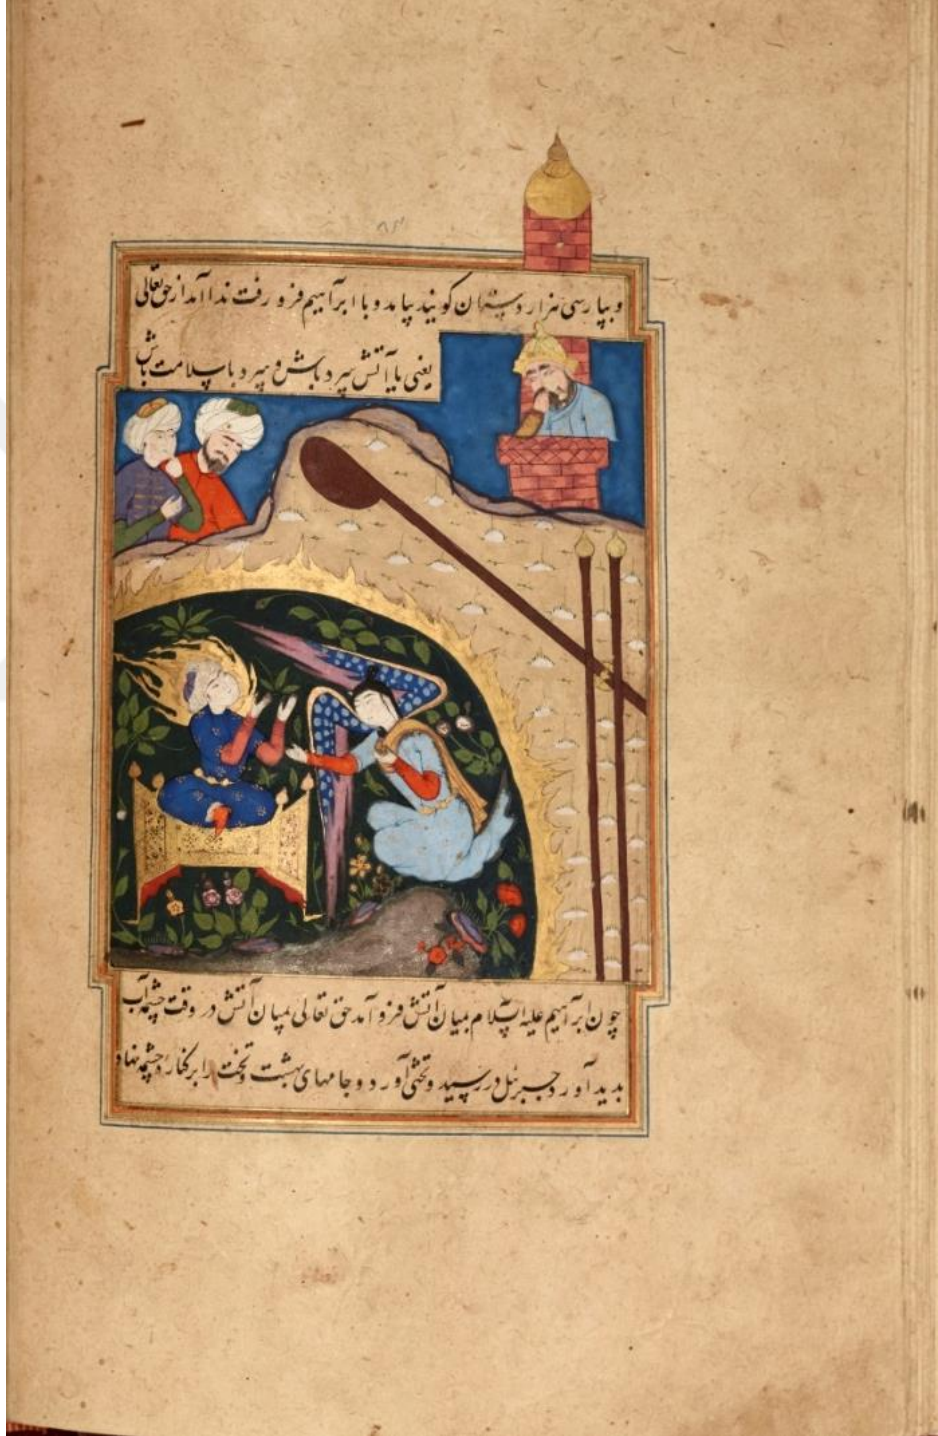 و بپارسی هزار دستان کویند بیامد و با ابراهیم فرو رفت ندا آمد از حق تعالی
یعنی یا آتش سرد باش و سرد باسلامت باش
چون ابراهیم علیه السلام بمیان آتش فرو آمد حق تعالی بمیان آتش در وقت چشمه آب
بدید آورد جبرئیل در رسید و تختی آورد و جامهای بهشت و تخت را بر کنار چشمه نهاد